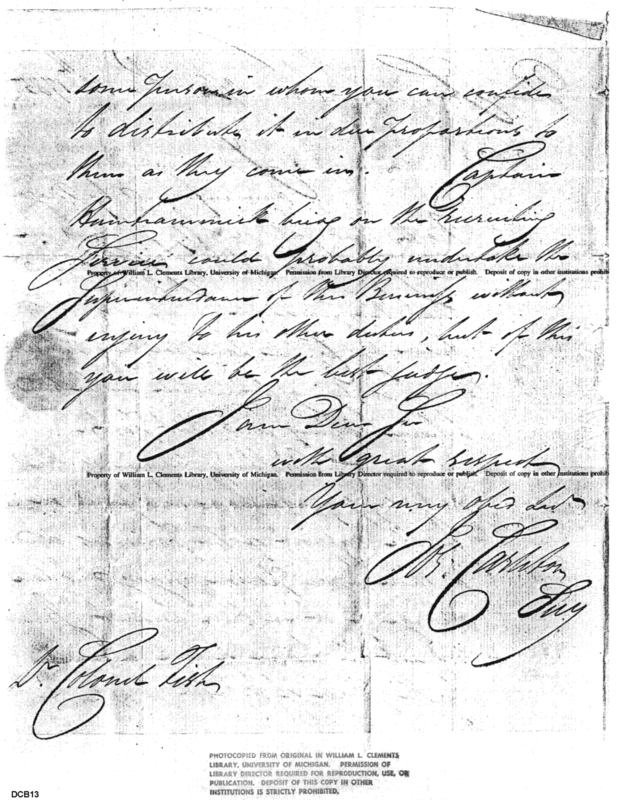 some person in whom you can confide
to distribute it in due proportions to
them as they come in. Captain
Hamtrammick being on the Recruiting
Service could probably undertake the
Property of William L. Clements Library, University of Michigan. Permission from Library Director required to reproduce or publish. Deposit of copy in other institutions prohib
Superintendance of this Business without
injury to his other duties, but of this
you will be the best judge.
I am Dear Sir
with great respect
Property of William L. Clements Library, University of Michigan. Permission from Library Director required to reproduce or publish. Deposit of copy in other institutions prohib
Your very obed Servt
Jos. Carleton
Secy
Lt. Colonel Fish
PHOTOCOPIED FROM ORIGINAL IN WILLIAM L. CLEMENTS
LIBRARY, UNIVERSITY OF MICHIGAN. PERMISSION OF
LIBRARY DIRECTOR REQUIRED FOR REPRODUCTION, USE, OR
PUBLICATION. DEPOSIT OF THIS COPY IN OTHER
INSTITUTIONS IS STRICTLY PROHIBITED.
DCB13